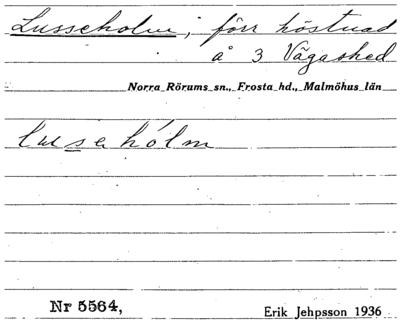 Lusseholm, förr höstvad
å 3 Vägasked
Norra Rörums sn., Frosta hd., Malmöhus län
lusehólm
Nr 5564,
Erik Jehpsson 1936